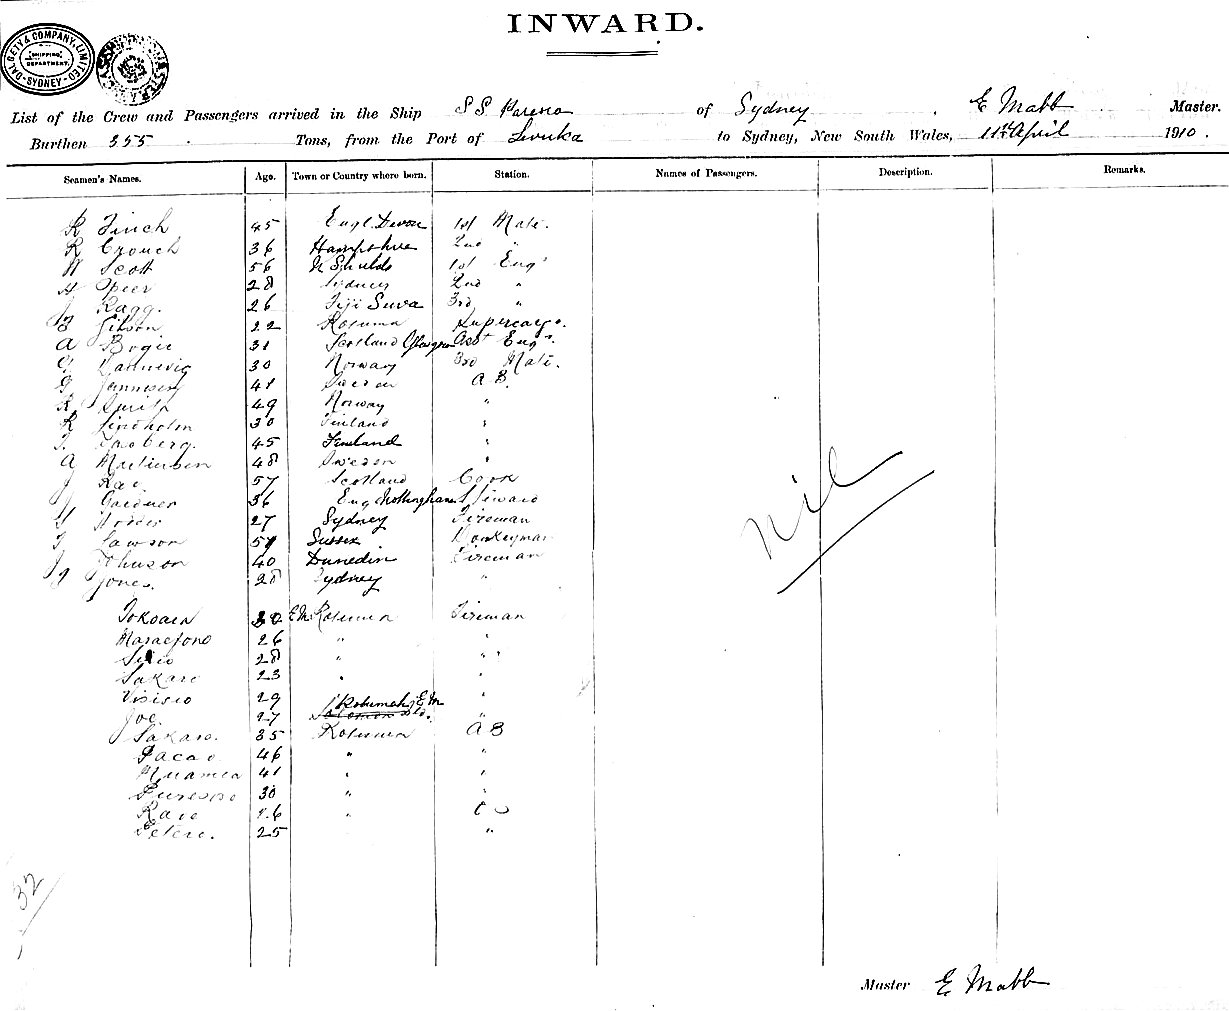 INWARD.
DALGETY & COMPANY, LIMITED
SHIPPING DEPARTMENT.
SYDNEY
List of the Crew and Passengers arrived in the Ship S S of Sydney E Mabb Master.
Burthen 355 Tons, from the Port of Levuka to Sydney, New South Wales, 11th April 1910.
Seamen's Names. Age. Town or Country where born. Station. Names of Passengers. Description. Remarks.
R Finch 45 Engl. Devon 1st Mate.
R Crouch 36 Hampshire 2nd "
W Scott 56 N Shields 1st Engr
H Speer 28 Sydney 2nd "
J Ragg. 26 Fiji Suva 3rd "
Gibson 22 Rotuma Supercargo.
A Bogie 31 Scotland Glasgow Asst Engr.
G 30 Norway 3rd Mate.
G 41 Sweden A B.
R 49 Norway "
R Lindholm 30 Finland "
45 Finland "
A 48 Sweden "
J Rae 57 Scotland Cook
Gardner 36 Eng Nottingham Steward
27 Sydney Fireman
Lawson 51 Sussex Donkeyman
J Johnson 40 Dunedin Fireman
J Jones. 28 Sydney "
E M Rotuma Fireman
Maraefono 26 " "
28 " "
23 " "
Visisio 29 "
Joe. 27 Rotumah E M "
35 Rotuma A B
46 " "
41 " "
30 " "
26 "
25 "
Nil
32
Master E Mabb